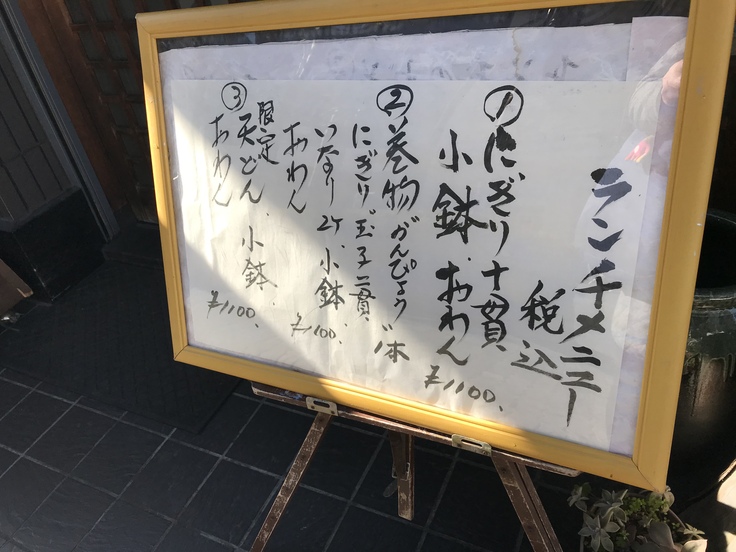 ランチメニュー
税込
①にぎり十貫
小鉢、おわん
¥1100、
②巻物がんぴょう1本
にぎり玉子二貫、
いなり2ケ、小鉢、
おわん
¥1100、
③限定
天どん、小鉢、
おわん
¥1100、